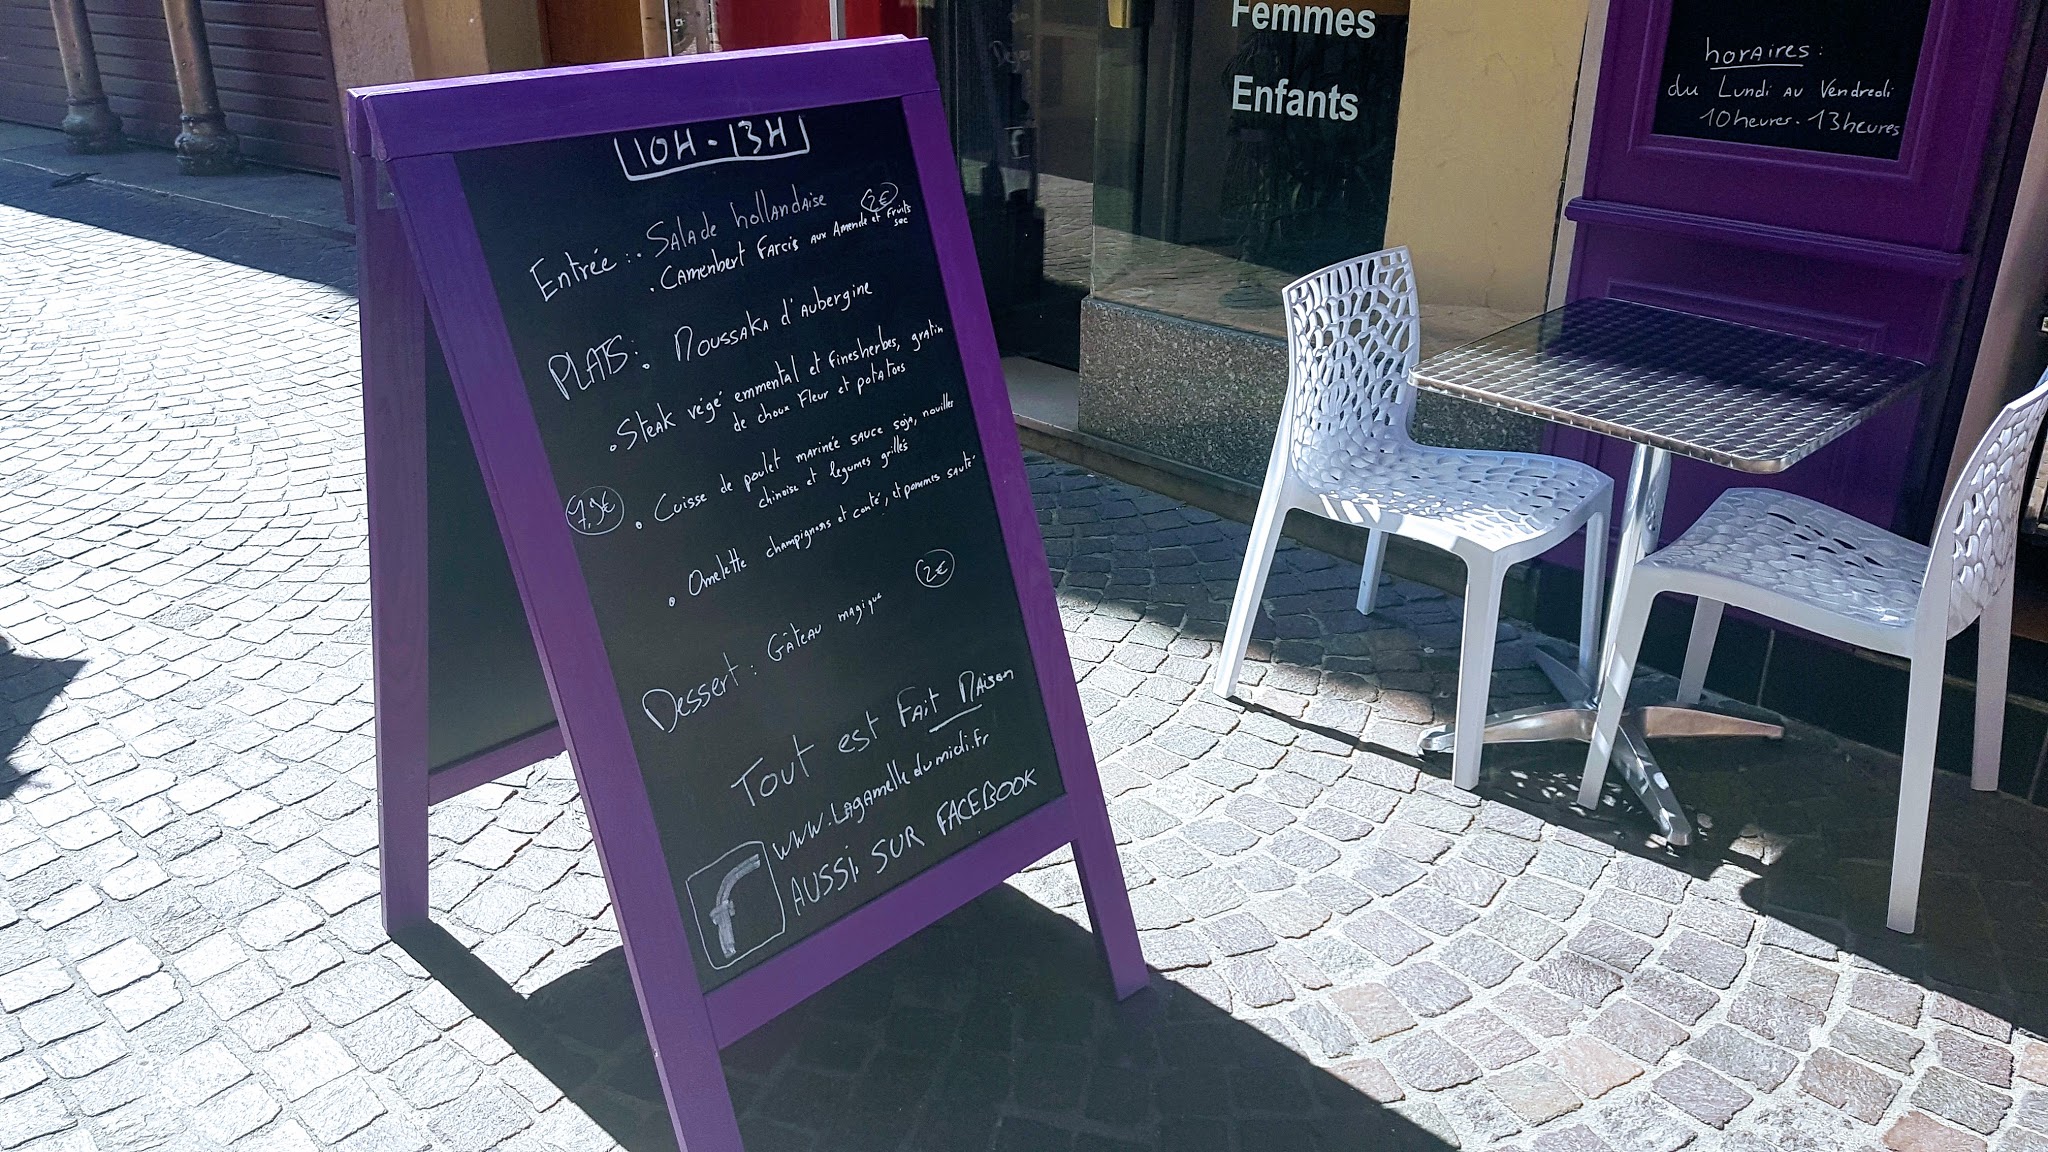 10H - 13H
Entrée : . Salade hollandaise 2€
. Camenbert Farcis aux Amende et fruits
sec
PLATS : . Moussaka d'aubergine
. Steak végé emmental et fines herbes, gratin
de choux Fleur et potatoes
7,9€ . Cuisse de poulet marinée sauce soja, nouilles
chinoise et légumes grillés
. Omelette champignons et comté, et pommes sauté
Dessert : Gâteau magique 2€
Tout est Fait Maison
www.Lagamelledumidi.fr
AUSSI SUR FACEBOOK
Femmes
Enfants
horaires :
du Lundi au Vendredi
10heures - 13heures